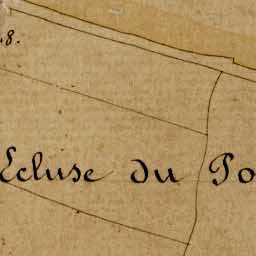 8.
Ecluse du Po